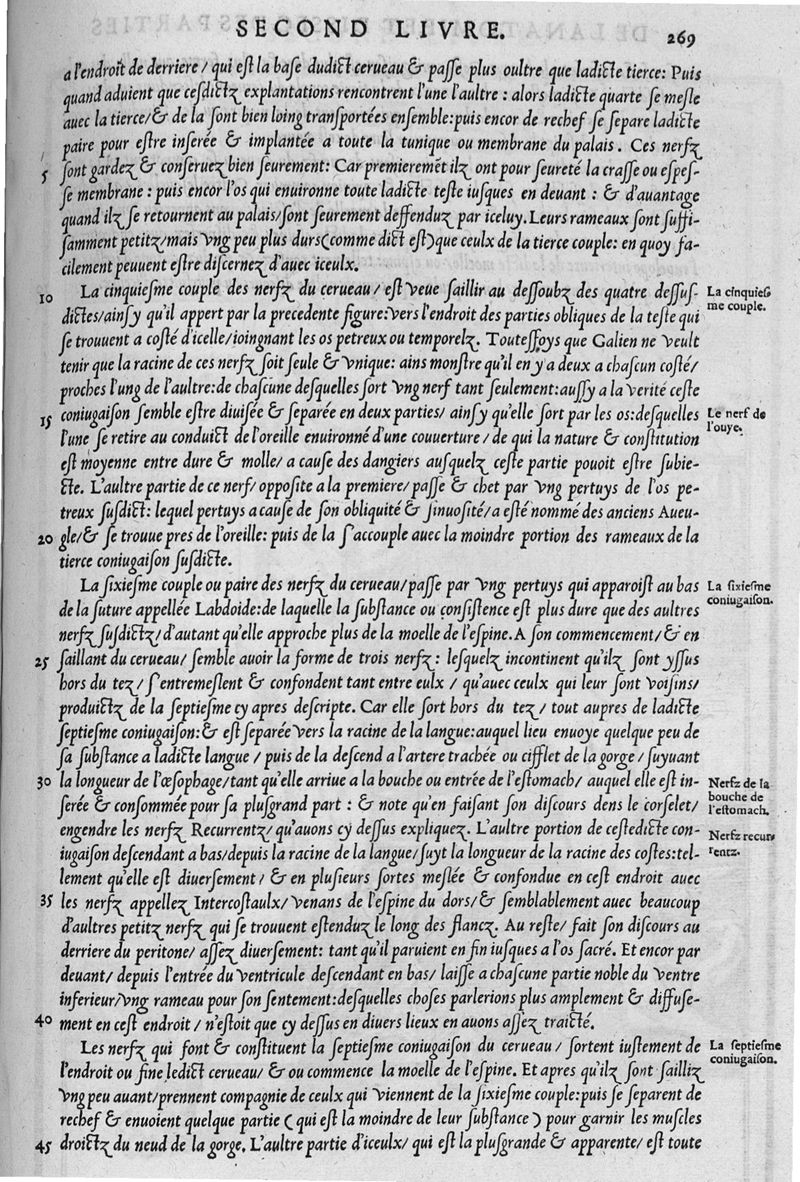 SECOND LIVRE.
269
a l'endroit de derriere / qui est la base dudict cerueau & passe plus oultre que ladicte tierce: Puis
quand aduient que cesdictz explantations rencontrent l'une l'aultre : alors ladicte quarte se mesle
auec la tierce/& de la sont bien loing transportées ensemble: puis encor de rechef se separe ladicte
paire pour estre inserée & implantée a toute la tunique ou membrane du palais. Ces nerfz
5 sont gardez & conseruez bien seurement: Car premieremēt ilz ont pour seureté la crasse ou espes-
se membrane : puis encor l'os qui enuironne toute ladicte teste iusques en deuant : & d'auantage
quand ilz se retournent au palais/sont seurement deffenduz par iceluy. Leurs rameaux sont suffi-
samment petitz/mais vng peu plus durs(comme dict est)que ceulx de la tierce couple: en quoy fa-
cilement peuuent estre discernez d'auec iceulx.
10 La cinquiesme couple des nerfz du cerueau / est veue saillir au dessoubz des quatre dessus-
La cinquies
dictes/ainsy qu'il appert par la precedente figure: vers l'endroit des parties obliques de la teste qui
me couple.
se trouuent a costé d'icelle/ioingnant les os petreux ou temporelz. Toutesfoys que Galien ne veult
tenir que la racine de ces nerfz soit seule & vnique: ains monstre qu'il en y a deux a chascun costé/
proches l'ung de l'aultre: de chascune desquelles sort vng nerf tant seulement: aussy a la verité ceste
15 coniugaison semble estre diuisée & separée en deux parties/ ainsy qu'elle sort par les os: desquelles
Le nerf de
l'ouye.
l'une se retire au conduict de l'oreille enuironné d'une couuerture / de qui la nature & constitution
est moyenne entre dure & molle/ a cause des dangiers ausquelz ceste partie pouoit estre subie-
cte. L'aultre partie de ce nerf/ opposite a la premiere/ passe & chet par vng pertuys de l'os pe-
treux susdict: lequel pertuys a cause de son obliquité & sinuosité/a esté nommé des anciens Aueu-
20 gle/& se trouue pres de l'oreille: puis de la s'accouple auec la moindre portion des rameaux de la
tierce coniugaison susdicte.
La sixiesme couple ou paire des nerfz du cerueau/passe par vng pertuys qui apparoist au bas
La sixiesme
coniugaison.
de la suture appellée Labdoide: de laquelle la substance ou consistence est plus dure que des aultres
nerfz susdictz/d'autant qu'elle approche plus de la moelle de l'espine. A son commencement/& en
25 saillant du cerueau/ semble auoir la forme de trois nerfz: lesquelz incontinent qu'ilz sont yssus
hors du tez/ s'entremeslent & confondent tant entre eulx / qu'auec ceulx qui leur sont voisins/
produictz de la septiesme cy apres descripte. Car elle sort hors du tez/ tout aupres de ladicte
septiesme coniugaison: & est separée vers la racine de la langue: auquel lieu enuoye quelque peu de
sa substance a ladicte langue / puis de la descend a l'artere trachée ou cifflet de la gorge / suyuant
30 la longueur de l'œsophage/tant qu'elle arriue a la bouche ou entrée de l'estomach/ auquel elle est in-
Nerfz de la
bouche de
l'estomach.
serée & consommée pour sa plusgrand part : & note qu'en faisant son discours dens le corselet/
engendre les nerfz Recurrentz/ qu'auons cy dessus expliquez. L'aultre portion de cestedicte con-
Nerfz recur
rentz.
iugaison descendant a bas/depuis la racine de la langue/suyt la longueur de la racine des costes: tel-
lement qu'elle est diuersement / & en plusieurs sortes meslée & confondue en cest endroit auec
35 les nerfz appellez Intercostaulx/ venans de l'espine du dors/& semblablement auec beaucoup
d'aultres petitz nerfz qui se trouuent estenduz le long des flancz. Au reste/ fait son discours au
derriere du peritone/ assez diuersement: tant qu'il paruient en fin iusques a l'os sacré. Et encor par
deuant/ depuis l'entrée du ventricule descendant en bas/ laisse a chascune partie noble du ventre
inferieur/vng rameau pour son sentement: desquelles choses parlerions plus amplement & diffuse-
40 ment en cest endroit / n'estoit que cy dessus en diuers lieux en auons assez traicté.
Les nerfz qui font & constituent la septiesme coniugaison du cerueau / sortent iustement de
La septiesme
coniugaison.
l'endroit ou fine ledict cerueau/ & ou commence la moelle de l'espine. Et apres qu'ilz sont sailliz
vng peu auant/prennent compagnie de ceulx qui viennent de la sixiesme couple: puis se separent de
rechef & enuoient quelque partie ( qui est la moindre de leur substance ) pour garnir les muscles
45 droictz du neud de la gorge. L'aultre partie d'iceulx/ qui est la plusgrande & apparente/ est toute